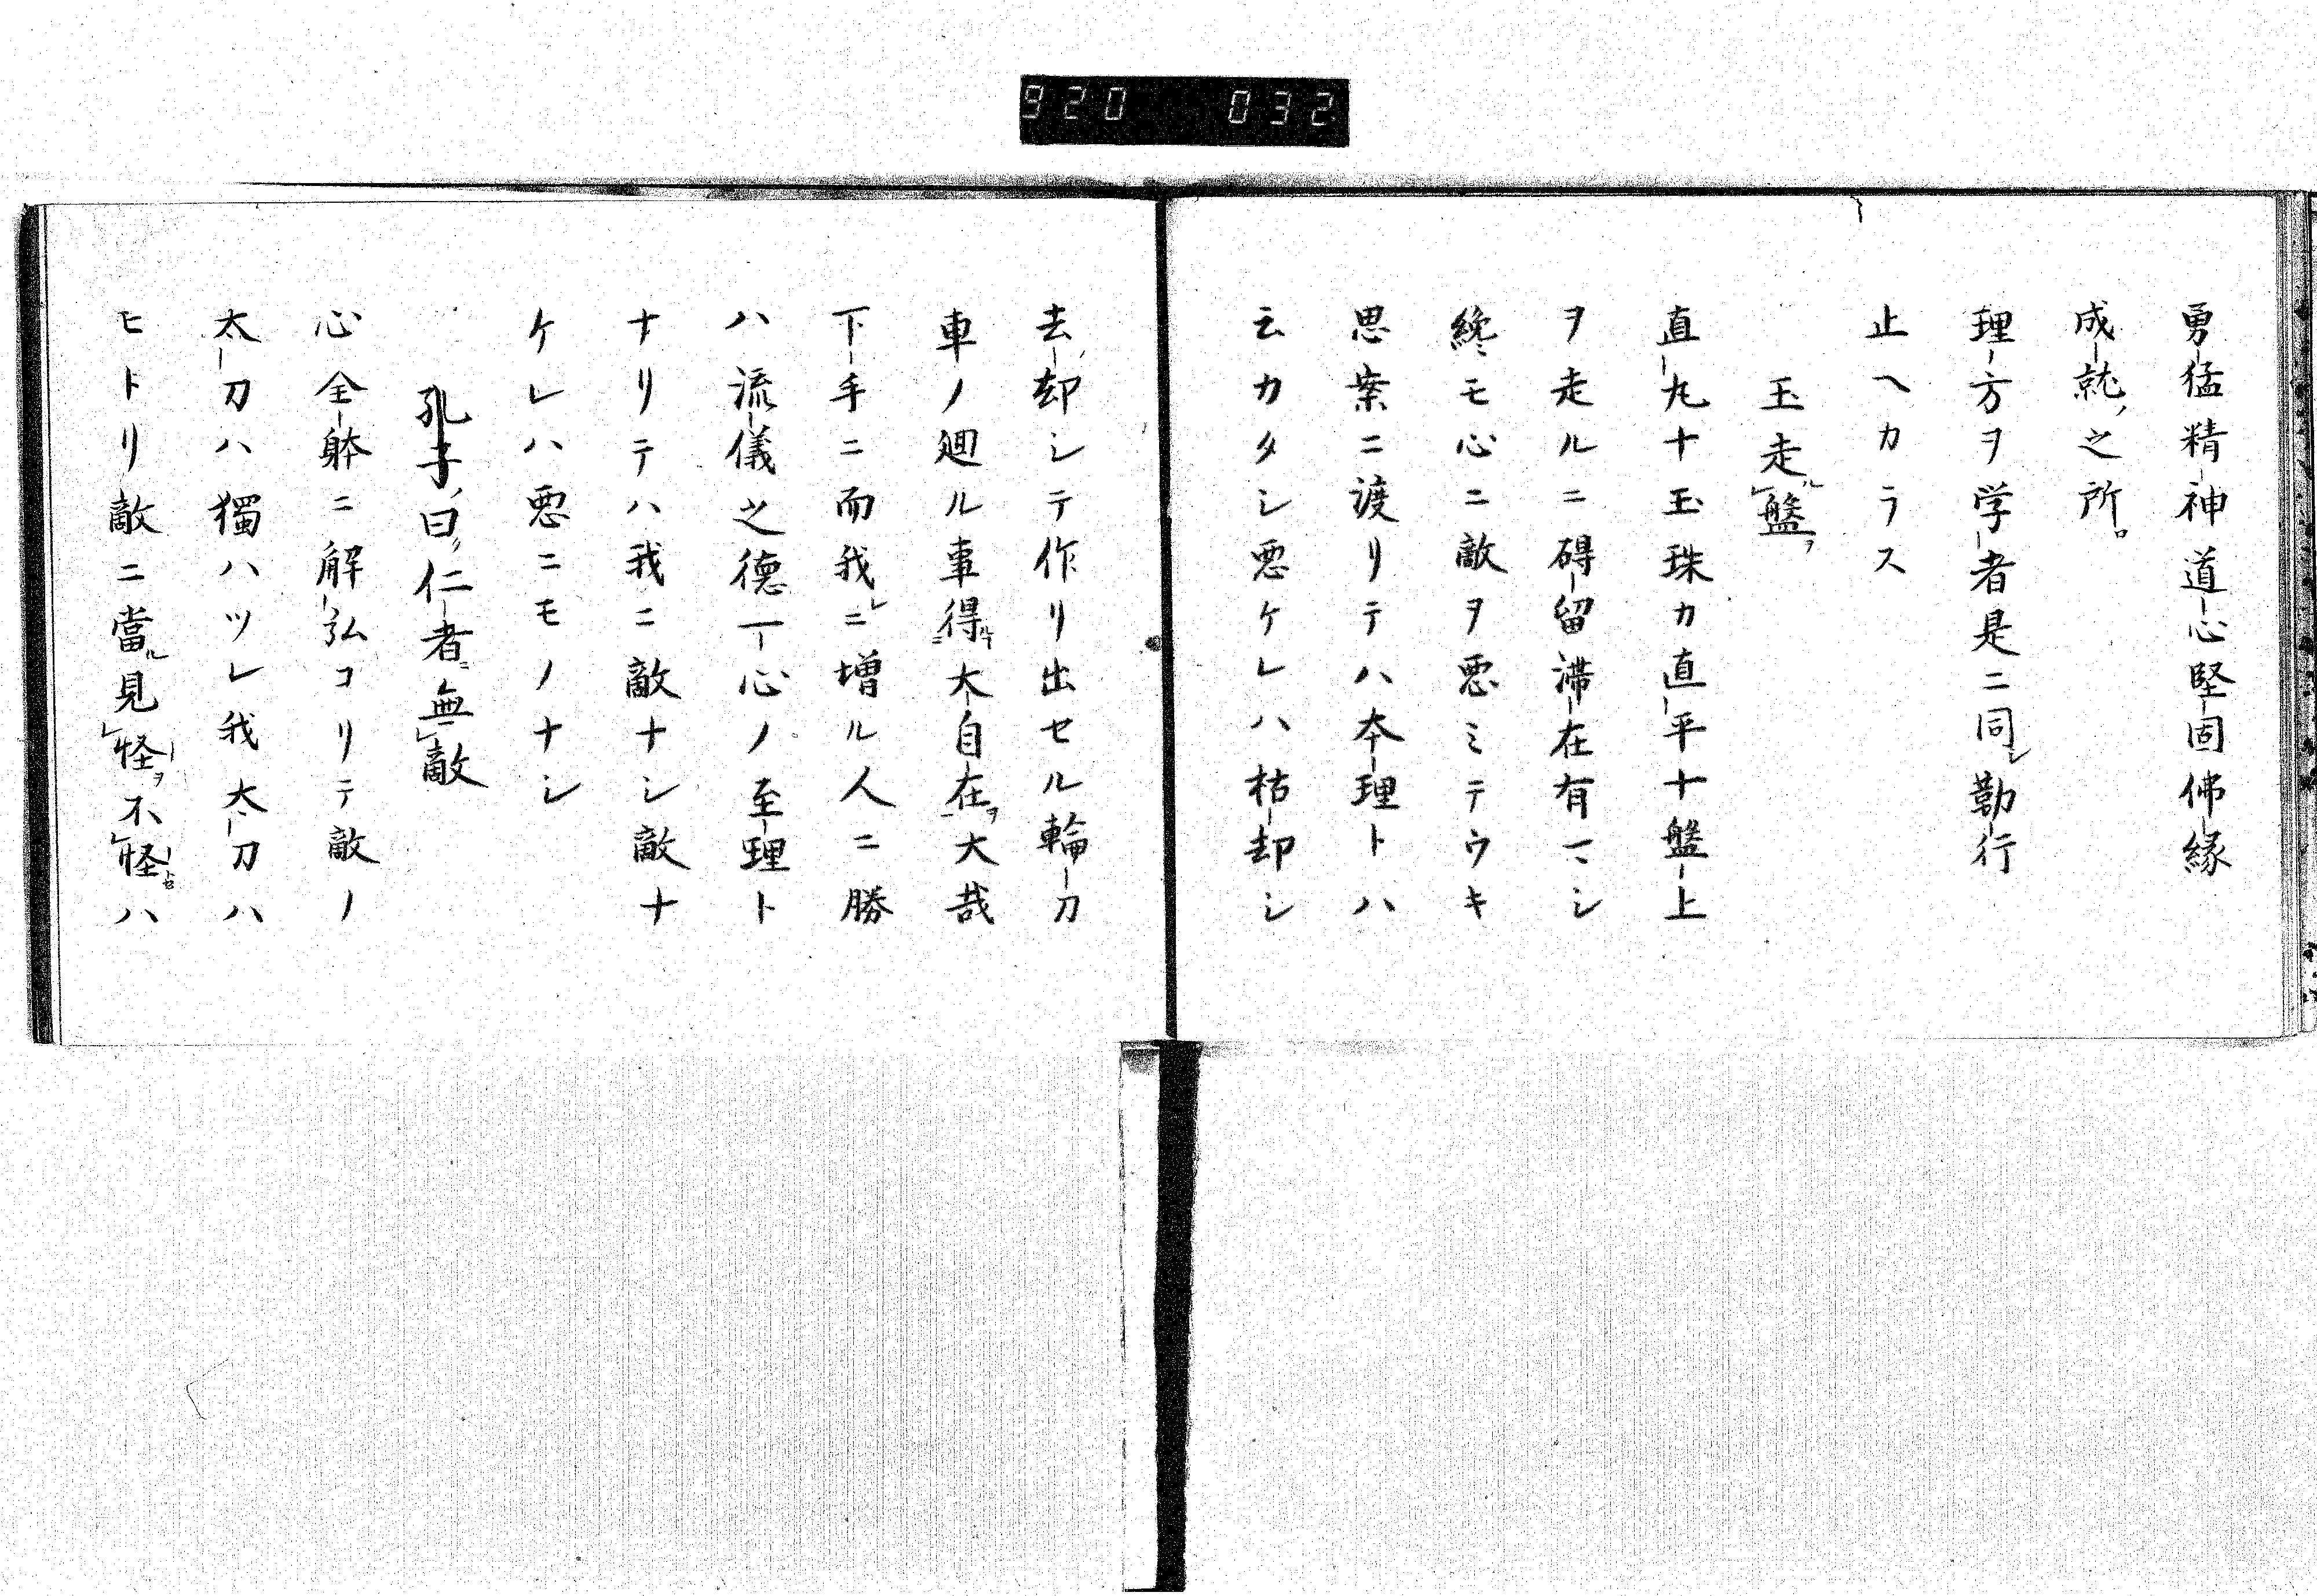 920 032
勇猛精神道心堅固佛縁
成就ノ之所。
理方ヲ学者是ニ同レ勤行
止ヘカラス
玉走ルレ盤ヲ
直丸ナ玉珠カ直平ナ盤上
ヲ走ルニ碍留滞在有マシ
纔モ心ニ敵ヲ悪ミテウキ
思案ニ渡リテハ本理トハ
云カタシ悪ケレハ枯却シ
去却シテ作リ出セル輪刀
車ノ廻ル事得大自在ヲ大哉
下手ニ而我レニ増ル人ニ勝
ハ流儀之徳一心ノ至理ト
ナリテハ我ニ敵ナシ敵ナ
ケレハ悪ニモノナシ
孔子ノ曰ク仁者ニ無レ敵
心全躰ニ解弘コリテ敵ノ
太刀ハ獨ハツレ我太刀ハ
ヒトリ敵ニ當ル見レ怪ヲ不レ怪トセハ